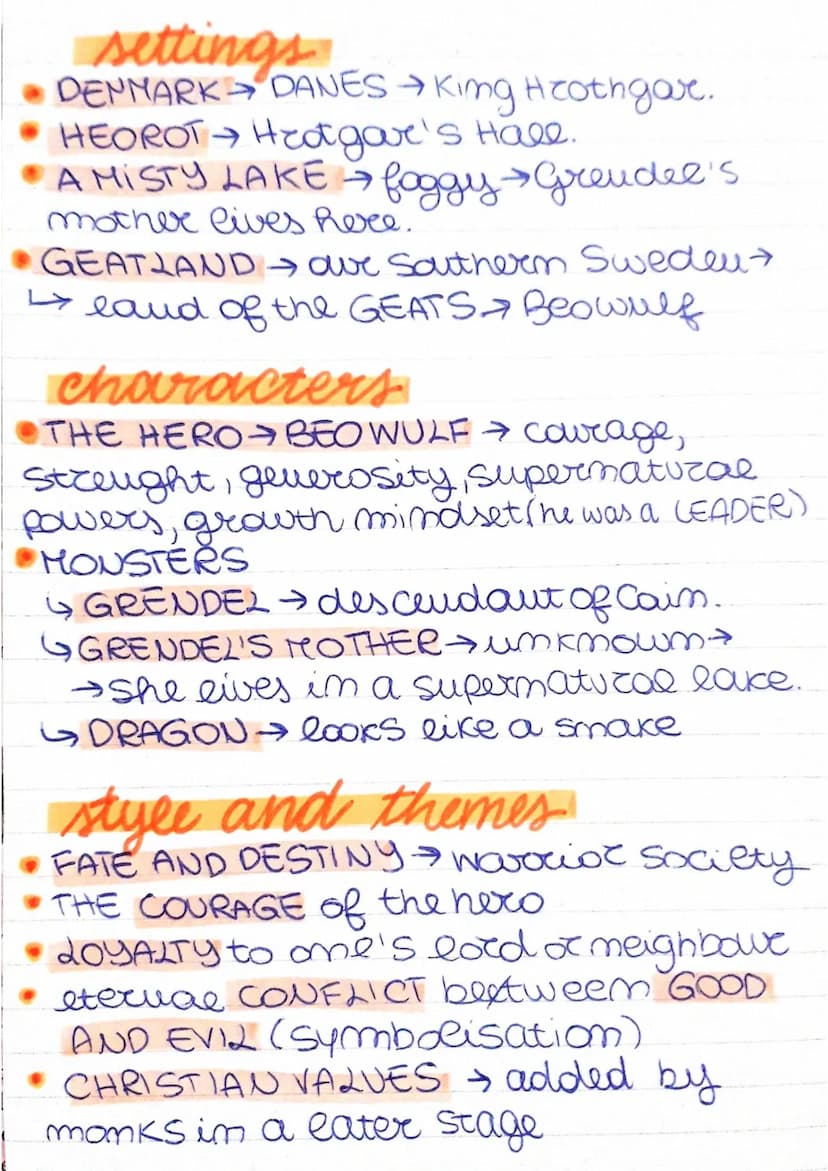 settings
• DENMARK → DANES → King Hrothgar.
• HEOROT → Hrotgar's Hall.
• A MISTY LAKE → foggy → Grendel's
mother lives here.
• GEATLAND → our Southern Sweden →
↳ land of the GEATS → Beowulf
characters
• THE HERO → BEOWULF → courage,
strenght, generosity, supernatural
powers, growth mindset (he was a LEADER)
• MONSTERS
↳ GRENDEL → descendant of Cain.
↳ GRENDEL'S MOTHER → unknown →
→ she lives in a supernatural lake.
↳ DRAGON → looks like a snake
style and themes
• FATE AND DESTINY → warrior society
• THE COURAGE of the hero
• LOYALTY to one's lord or neighbour
• eternal CONFLICT between GOOD
AND EVIL (symbolisation)
• CHRISTIAN VALUES → added by
monks in a later stage